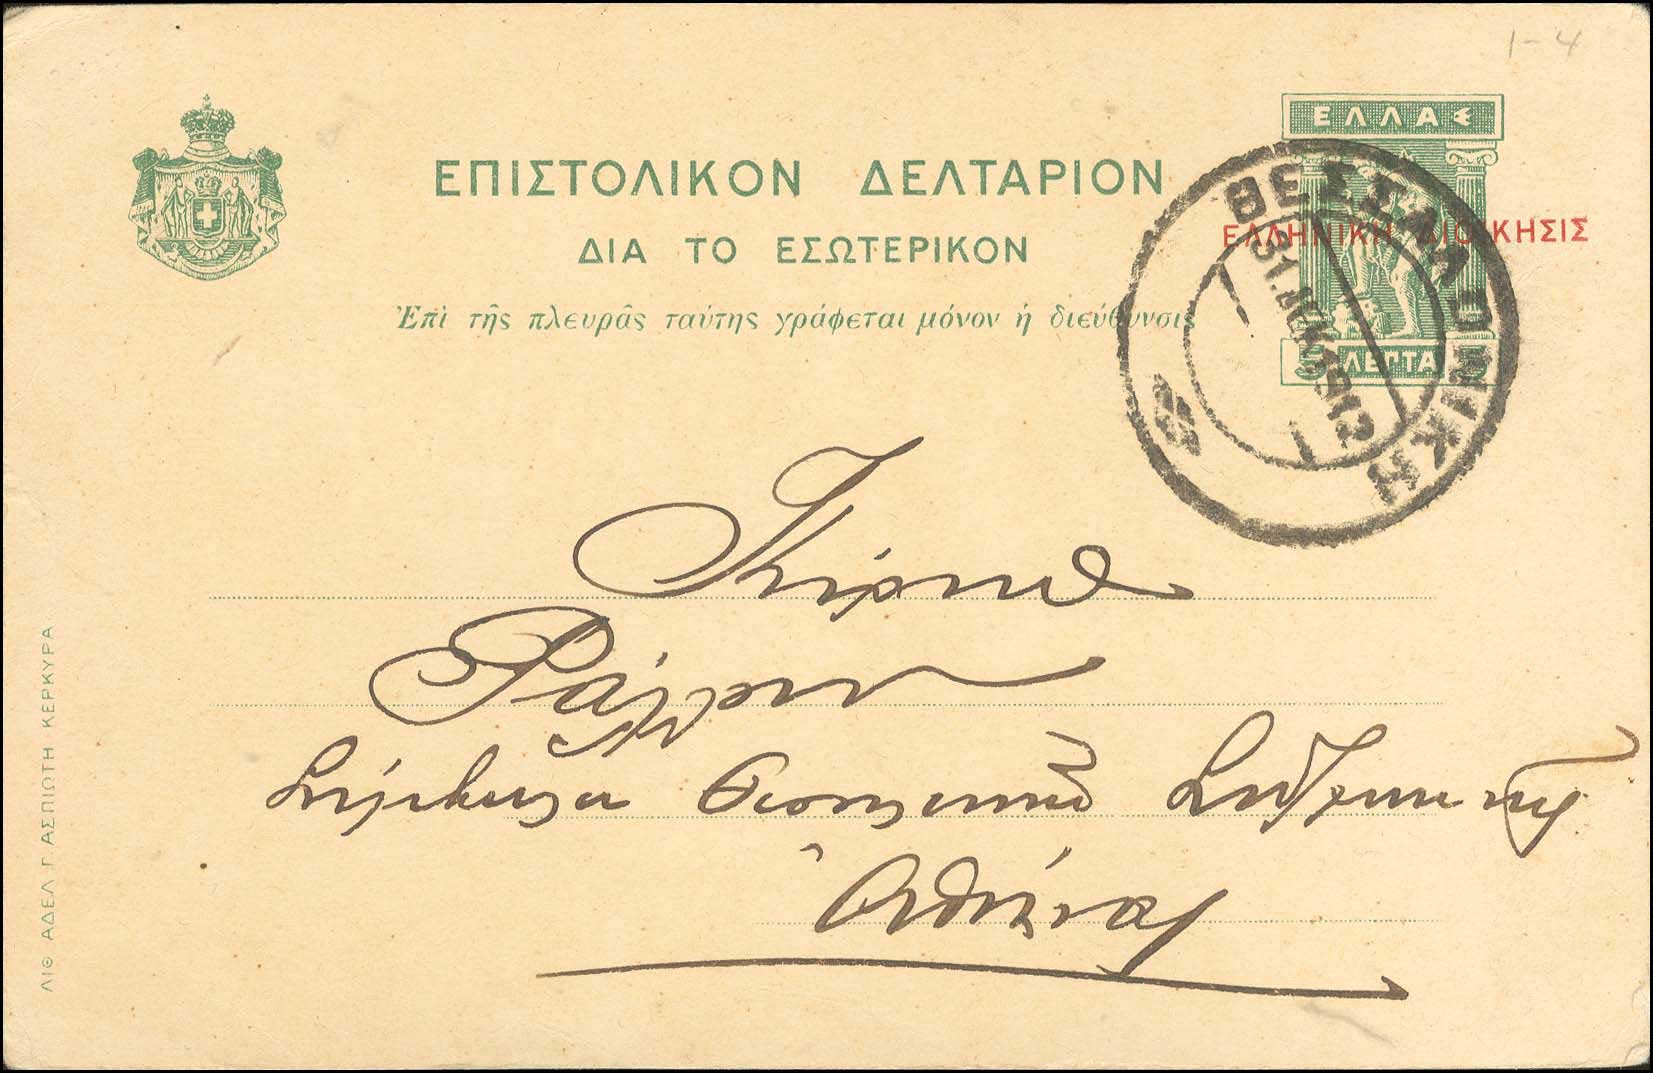 1-4
ΕΛΛΑΣ
ΕΠΙΣΤΟΛΙΚΟΝ ΔΕΛΤΑΡΙΟΝ
ΔΙΑ ΤΟ ΕΣΩΤΕΡΙΚΟΝ
Ἐπὶ τῆς πλευρᾶς ταύτης γράφεται μόνον ἡ διεύθυνσις
ΕΛΛΗΝΙΚΗ ΔΙΟΙΚΗΣΙΣ
5 ΛΕΠΤΑ 5
ΘΕΣΣΑΛΟΝΙΚΗ
1912
Κύριον
Ῥάλλην
Ἀθήνας
ΛΙΘ ΑΔΕΛ. Γ. ΑΣΠΙΩΤΗ ΚΕΡΚΥΡΑ